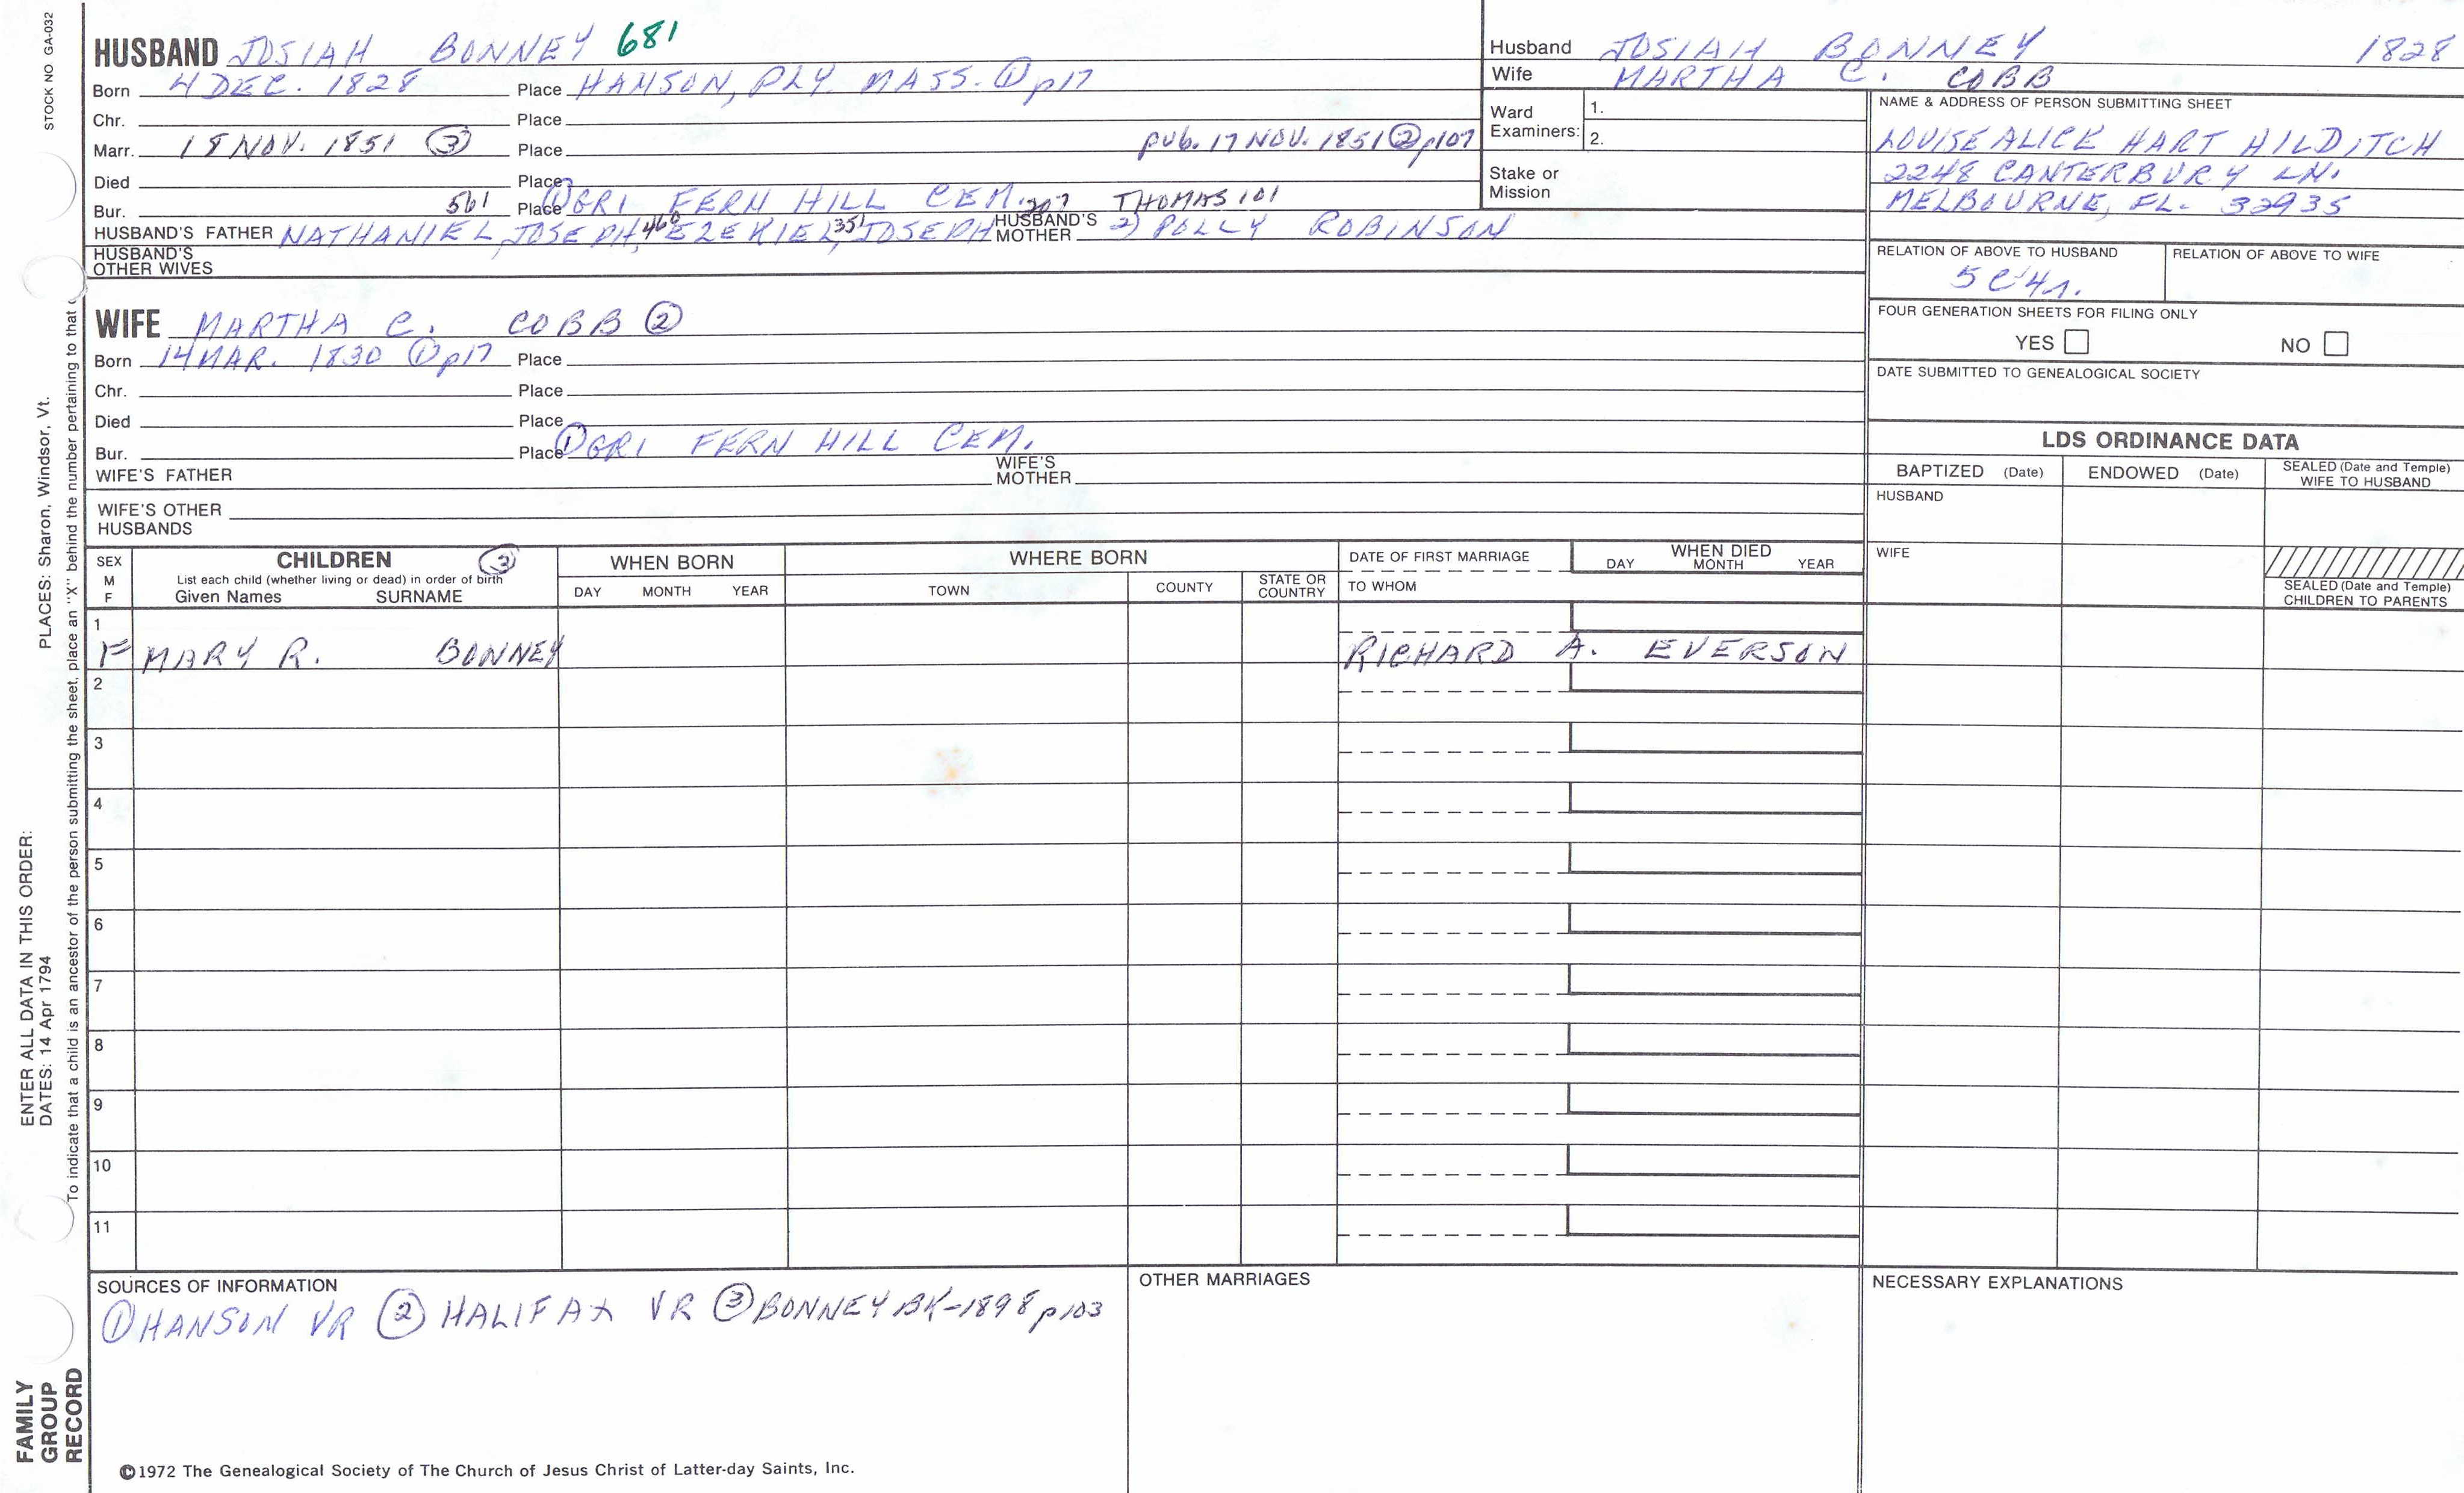 STOCK NO GA-032
HUSBAND JOSIAH BONNEY 681
Born 4 DEC. 1828 Place HANSON, PLY. MASS. ① p17
Chr. Place
Marr. 18 NOV. 1851 ③ Place PUB. 17 NOV. 1851 ② p107
Died Place
Bur. Place ① GRI FERN HILL CEM.
561 460 351 207 THOMAS 101
HUSBAND'S FATHER NATHANIEL, JOSEPH, EZEKIEL, JOSEPH HUSBAND'S MOTHER 2) POLLY ROBINSON
HUSBAND'S OTHER WIVES
WIFE MARTHA C. COBB ②
Born 14 MAR. 1830 ① p17 Place
Chr. Place
Died Place
Bur. Place ① GRI FERN HILL CEM.
WIFE'S FATHER WIFE'S MOTHER
WIFE'S OTHER HUSBANDS
Husband JOSIAH BONNEY 1828
Wife MARTHA C. COBB
Ward Examiners: 1.
2.
Stake or Mission
NAME & ADDRESS OF PERSON SUBMITTING SHEET
LOUISE ALICE HART HILDITCH
2248 CANTERBURY LN.
MELBOURNE, FL. 32935
RELATION OF ABOVE TO HUSBAND RELATION OF ABOVE TO WIFE
5C4r.
FOUR GENERATION SHEETS FOR FILING ONLY
YES NO
DATE SUBMITTED TO GENEALOGICAL SOCIETY
LDS ORDINANCE DATA
BAPTIZED (Date) ENDOWED (Date) SEALED (Date and Temple) WIFE TO HUSBAND
HUSBAND
WIFE
SEALED (Date and Temple) CHILDREN TO PARENTS
SEX M F
CHILDREN ③
List each child (whether living or dead) in order of birth
Given Names SURNAME
WHEN BORN
DAY MONTH YEAR
WHERE BORN
TOWN COUNTY STATE OR COUNTRY
DATE OF FIRST MARRIAGE
TO WHOM
WHEN DIED
DAY MONTH YEAR
1
F MARY R. BONNEY RICHARD A. EVERSON
2
3
4
5
6
7
8
9
10
11
SOURCES OF INFORMATION
① HANSON VR ② HALIFAX VR ③ BONNEY BK-1898 p103
OTHER MARRIAGES
NECESSARY EXPLANATIONS
©1972 The Genealogical Society of The Church of Jesus Christ of Latter-day Saints, Inc.
FAMILY GROUP RECORD
ENTER ALL DATA IN THIS ORDER:
DATES: 14 Apr 1794 PLACES: Sharon, Windsor, Vt.
To indicate that a child is an ancestor of the person submitting the sheet, place an "X" behind the number pertaining to that